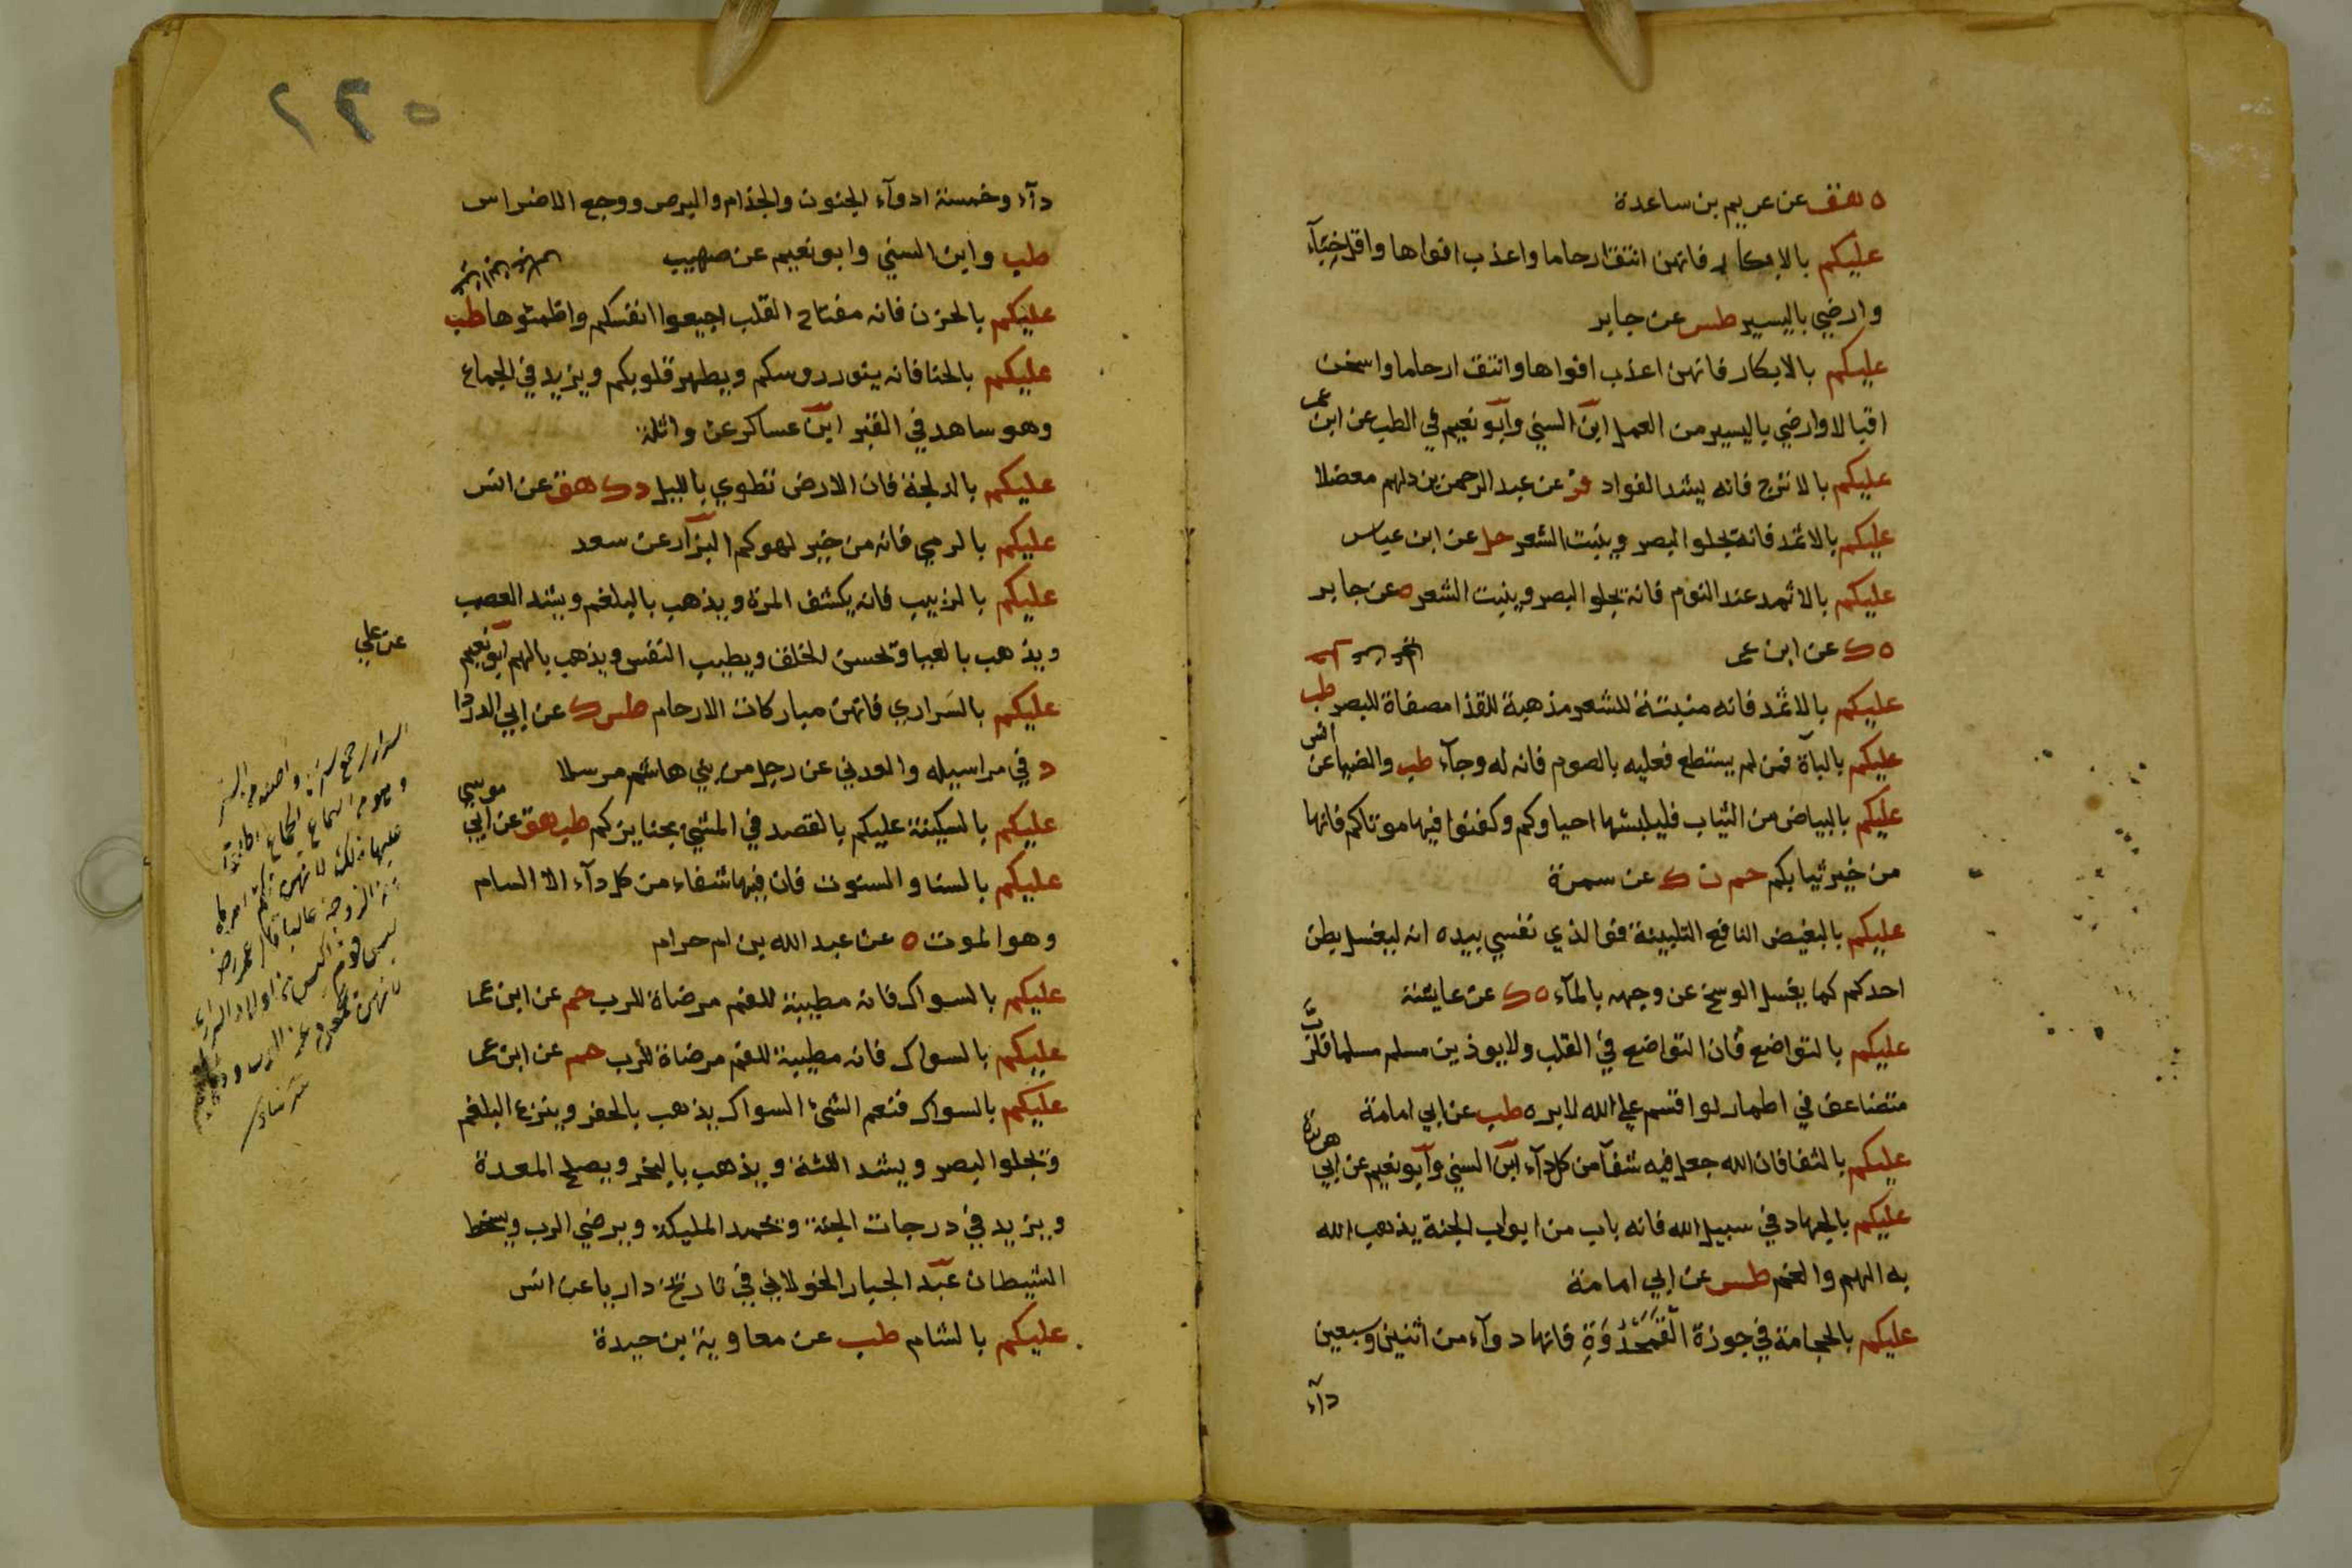 ه هق عن عريم بن ساعدة
عليكم بالابكار فانهن انتق ارحاما واعذب افواها واقل خبّآء
وارضي باليسير طس عن جابر
عليكم بالابكار فانهن اعذب افواها وانتق ارحاما واسخن
اقبالا وارضي باليسير من العمل ابن السني وابو نعيم في الطب عن ابن عمر
عليكم بالاترج فانه يشد الفواد فر عن عبد الرحمن بن دلهم معضلا
عليكم بالاثمد فانه يجلو البصر وينبت الشعر حل عن ابن عباس
عليكم بالاثمد عند النوم فانه يجلو البصر وينبت الشعر ه عن جابر
ه ك عن ابن عمر
عليكم بالاثمد فانه منبتة للشعر مذهبة للقذا مصفاة للبصر طب
عليكم بالبآة فمن لم يستطع فعليه بالصوم فانه له وجآء طب والضيا عن انس
عليكم بالبياض من الثياب فليلبسها احياوكم وكفنوا فيها موتاكم فانها
من خير ثيابكم حم ن ك عن سمرة
عليكم بالبغيض النافع التلبينة فوالذي نفسي بيده انه ليغسل بطن
احدكم كما يغسل الوسخ عن وجهه بالمآء ه ك عن عايشة
عليكم بالتواضع فان التواضع في القلب ولا يوذين مسلم مسلما فلرب
متضاعف في اطمار لو اقسم على الله لابره طب عن ابي امامة
عليكم بالثفا فان الله جعل فيه شفآ من كل دآء ابن السني وابو نعيم عن ابي هريرة
عليكم بالجهاد في سبيل الله فانه باب من ابواب الجنة يذهب الله
به الهم والغم طس عن ابي امامة
عليكم بالحجامة في جوزة القَمَحْدُوَةِ فانها دوآء من اثنين وسبعين
دآء
٢٣٥
دآء وخمسة ادوآء الجنون والجذام والبرص ووجع الاضراس
طب وابن السني وابو نعيم عن صهيب
عليكم بالحزن فانه مفتاح القلب اجيعوا انفسكم واظمئوها طب
عليكم بالحنا فانه ينور روسكم ويطهر قلوبكم ويزيد في الجماع
وهو ساهد في القبر ابن عساكر عن واثلة
عليكم بالدلجة فان الارض تطوي بالليل د ك هق عن انس
عليكم بالرمي فانه من خير لهوكم البزار عن سعد
عليكم بالزبيب فانه يكشف المرة ويذهب بالبلغم ويشد العصب
ويذهب بالعيا ويحسن الخلق ويطيب النفس ويذهب بالهم ابو نعيم
عن علي
عليكم بالسَراري فانهن مباركات الارحام طس ك عن ابي الدردا
د في مراسيله والعدني عن رجل من بني هاشم مرسلا
عليكم بالسكينة عليكم بالقصد في المشي بجنايزكم طب هق عن ابي موسي
عليكم بالسنا والسنوت فان فيها شفاء من كل دآء الا السام
وهو الموت ه عن عبد الله بن ام حرام
عليكم بالسواك فانه مطيبة للفم مرضاة للرب حم عن ابن عمر
عليكم بالسواك فانه مطيبة للفم مرضاة للرب حم عن ابن عمر
عليكم بالسواك فنعم الشئ السواك يذهب بالحفر وينزع البلغم
ويجلو البصر ويشد اللثة ويذهب بالبخر ويصلح المعدة
ويزيد في درجات الجنة ويحمد المليكة ويرضي الرب ويسخط
الشيطان عبد الجبار الخولاني في تاريخ داريا عن انس
عليكم بالشام طب عن معاوية بن حيدة